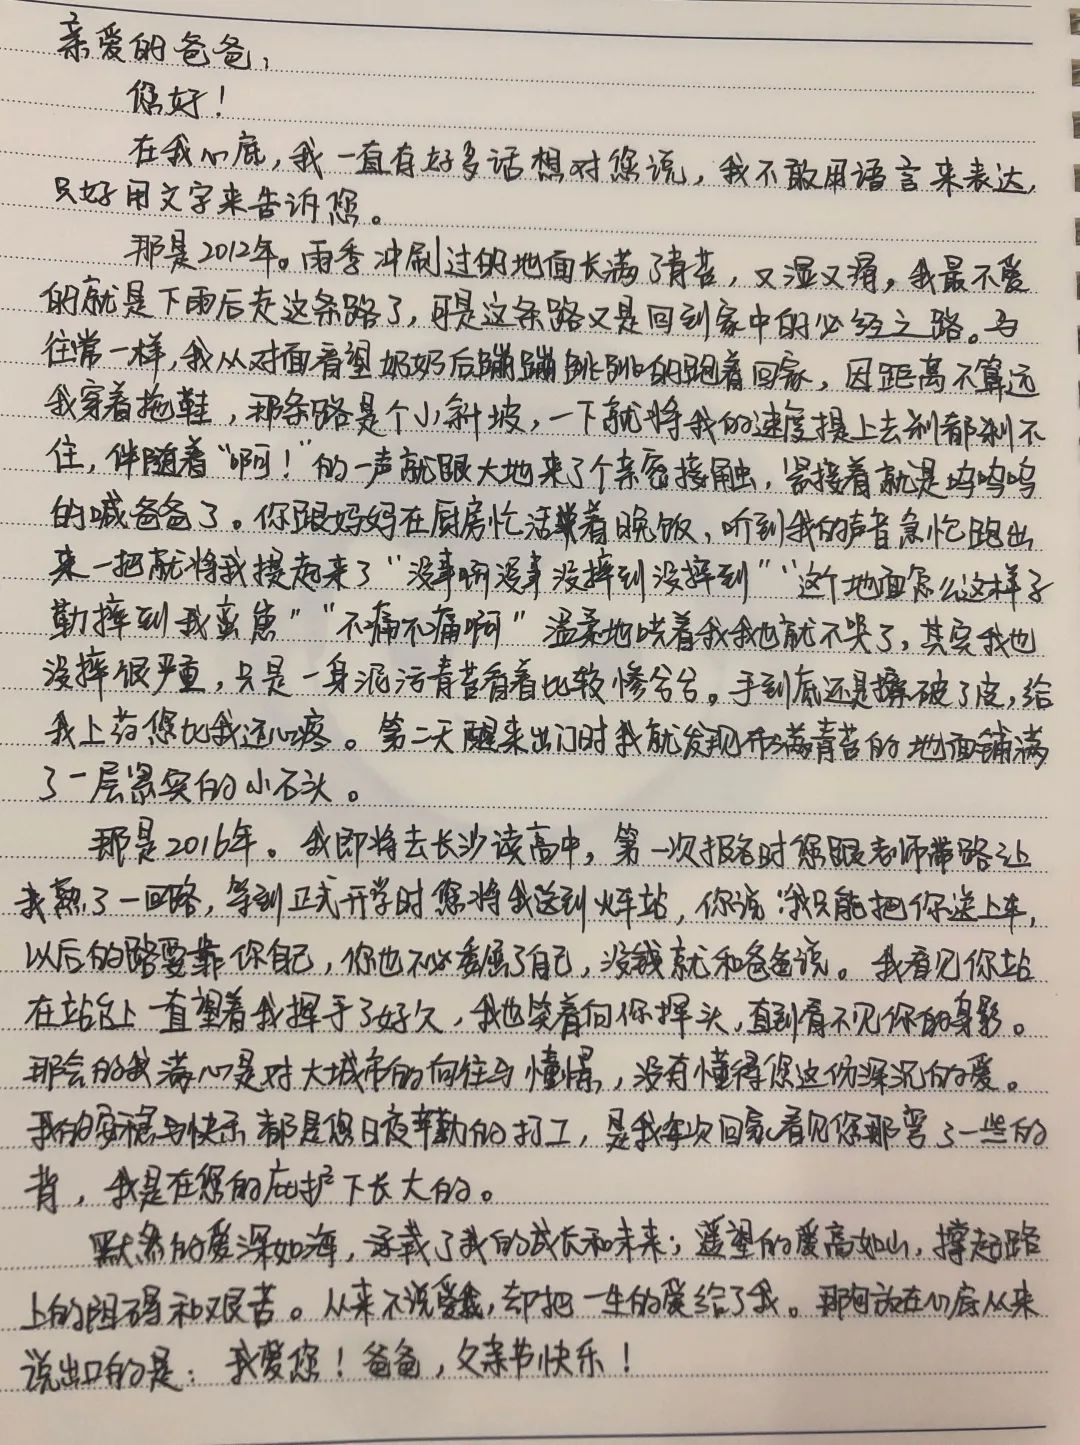 亲爱的爸爸，
您好！
在我心底，我一直有好多话想对您说，我不敢用语言来表达，
只好用文字来告诉您。
那是2012年。雨季冲刷过的地面长满了青苔，又湿又滑，我最不爱
的就是下雨后走这条路了，可是这条路又是回到家中的必经之路。与
往常一样，我从对面看望奶奶后蹦蹦跳跳的跑着回家，因距离不算远
我穿着拖鞋，那条路是个小斜坡，一下就将我的速度提上去刹都刹不
住，伴随着“啊！”的一声就跟大地来了个亲密接触，紧接着就是呜呜呜
的喊爸爸了。你跟妈妈在厨房忙活着晚饭，听到我的声音急忙跑出
来一把就将我提起来了“没事啊没事没摔到没摔到”“这个地面怎么这样子
勤摔到我蛮”“不痛不痛啊”温柔地哄着我我也就不哭了，其实我也
没摔很严重，只是一身泥污青苔看着比较惨兮兮。手到底还是擦破了皮，给
我上药您比我还心疼。第二天醒来出门时我就发现布满青苔的地面铺满
了一层紧实的小石头。
那是2016年。我即将去长沙读高中，第一次报名时您跟老师带路让
我熟了一回路，等到正式开学时您将我送到火车站，你说：“我只能把你送上车，
以后的路要靠你自己，你也不必委屈了自己，没钱就和爸爸说。我看见你站
在站台上一直望着我挥手了好久，我也笑着向你挥头，直到看不见你的身影。
那会的我满心是对大城市的向往与憧憬，没有懂得您这份深沉的爱。
我的安稳与快乐都是您日夜辛勤的打工，是我每次回家看见您那弯了一些的
背，我是在您的庇护下长大的。
默然的爱深如海，承载了我的成长和未来；遥望的爱高如山，撑起路
上的阻碍和艰苦。从来不说爱我，却把一生的爱给了我。那句放在心底从来
说出口的是：我爱您！爸爸，父亲节快乐！